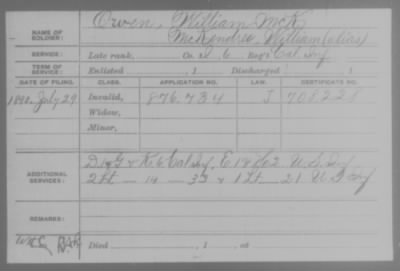 NAME OF SOLDIER: Owen, William McK.
McKendree, William (alias)
SERVICE: Late rank, Co. 6 Reg't Cal. Inf
TERM OF SERVICE: Enlisted , 1 Discharged , 1
DATE OF FILING. CLASS. APPLICATION NO. LAW. CERTIFICATE NO.
1890, July 29 Invalid, 876.734 J 708221
Widow,
Minor,
D & G & K 6 Cal Inf, E 18 & C 2 U.S. Inf
ADDITIONAL SERVICES: 2 Lt — 14 — 33 & 1 Lt — 21 U.S. Inf
REMARKS:
Died , 1 , at